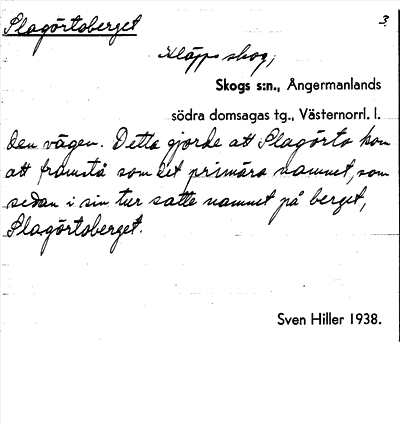 Slagörtoberget
3
Kläpps skog;
Skogs s:n., Ångermanlands
södra domsagas tg., Västernorrl. l.
den vägen. Detta gjorde att Slagörto kom
att framstå som det primära namnet, som
sedan i sin tur satte namnet på berget,
Slagörtoberget.
Sven Hiller 1938.